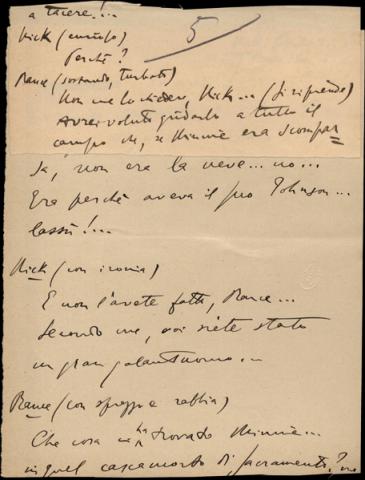 a tacere!...
5
Nick (curioso)
Perché?
Rance (sostando, turbato)
Non me lo chieder, Nick... (si riprende)
Avrei voluto gridarlo a tutto il
campo che, se Minnie era scompar
sa, non era la neve... no...
Era perché aveva il suo Johnson...
lassù!...
Nick (con ironia)
E non l'avete fatto, Rance...
Secondo me, voi siete stato
un gran galantuomo...
Rance (con sprezzo e rabbia)
Che cosa ha trovato Minnie...
in quel cascamorto di Sacramento?